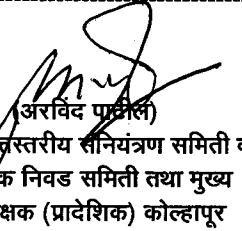 (अरविंद पाटील)
तस्तरीय संनियंत्रण समिती व
क निवड समिती तथा मुख्य
क्षक (प्रादेशिक) कोल्हापूर